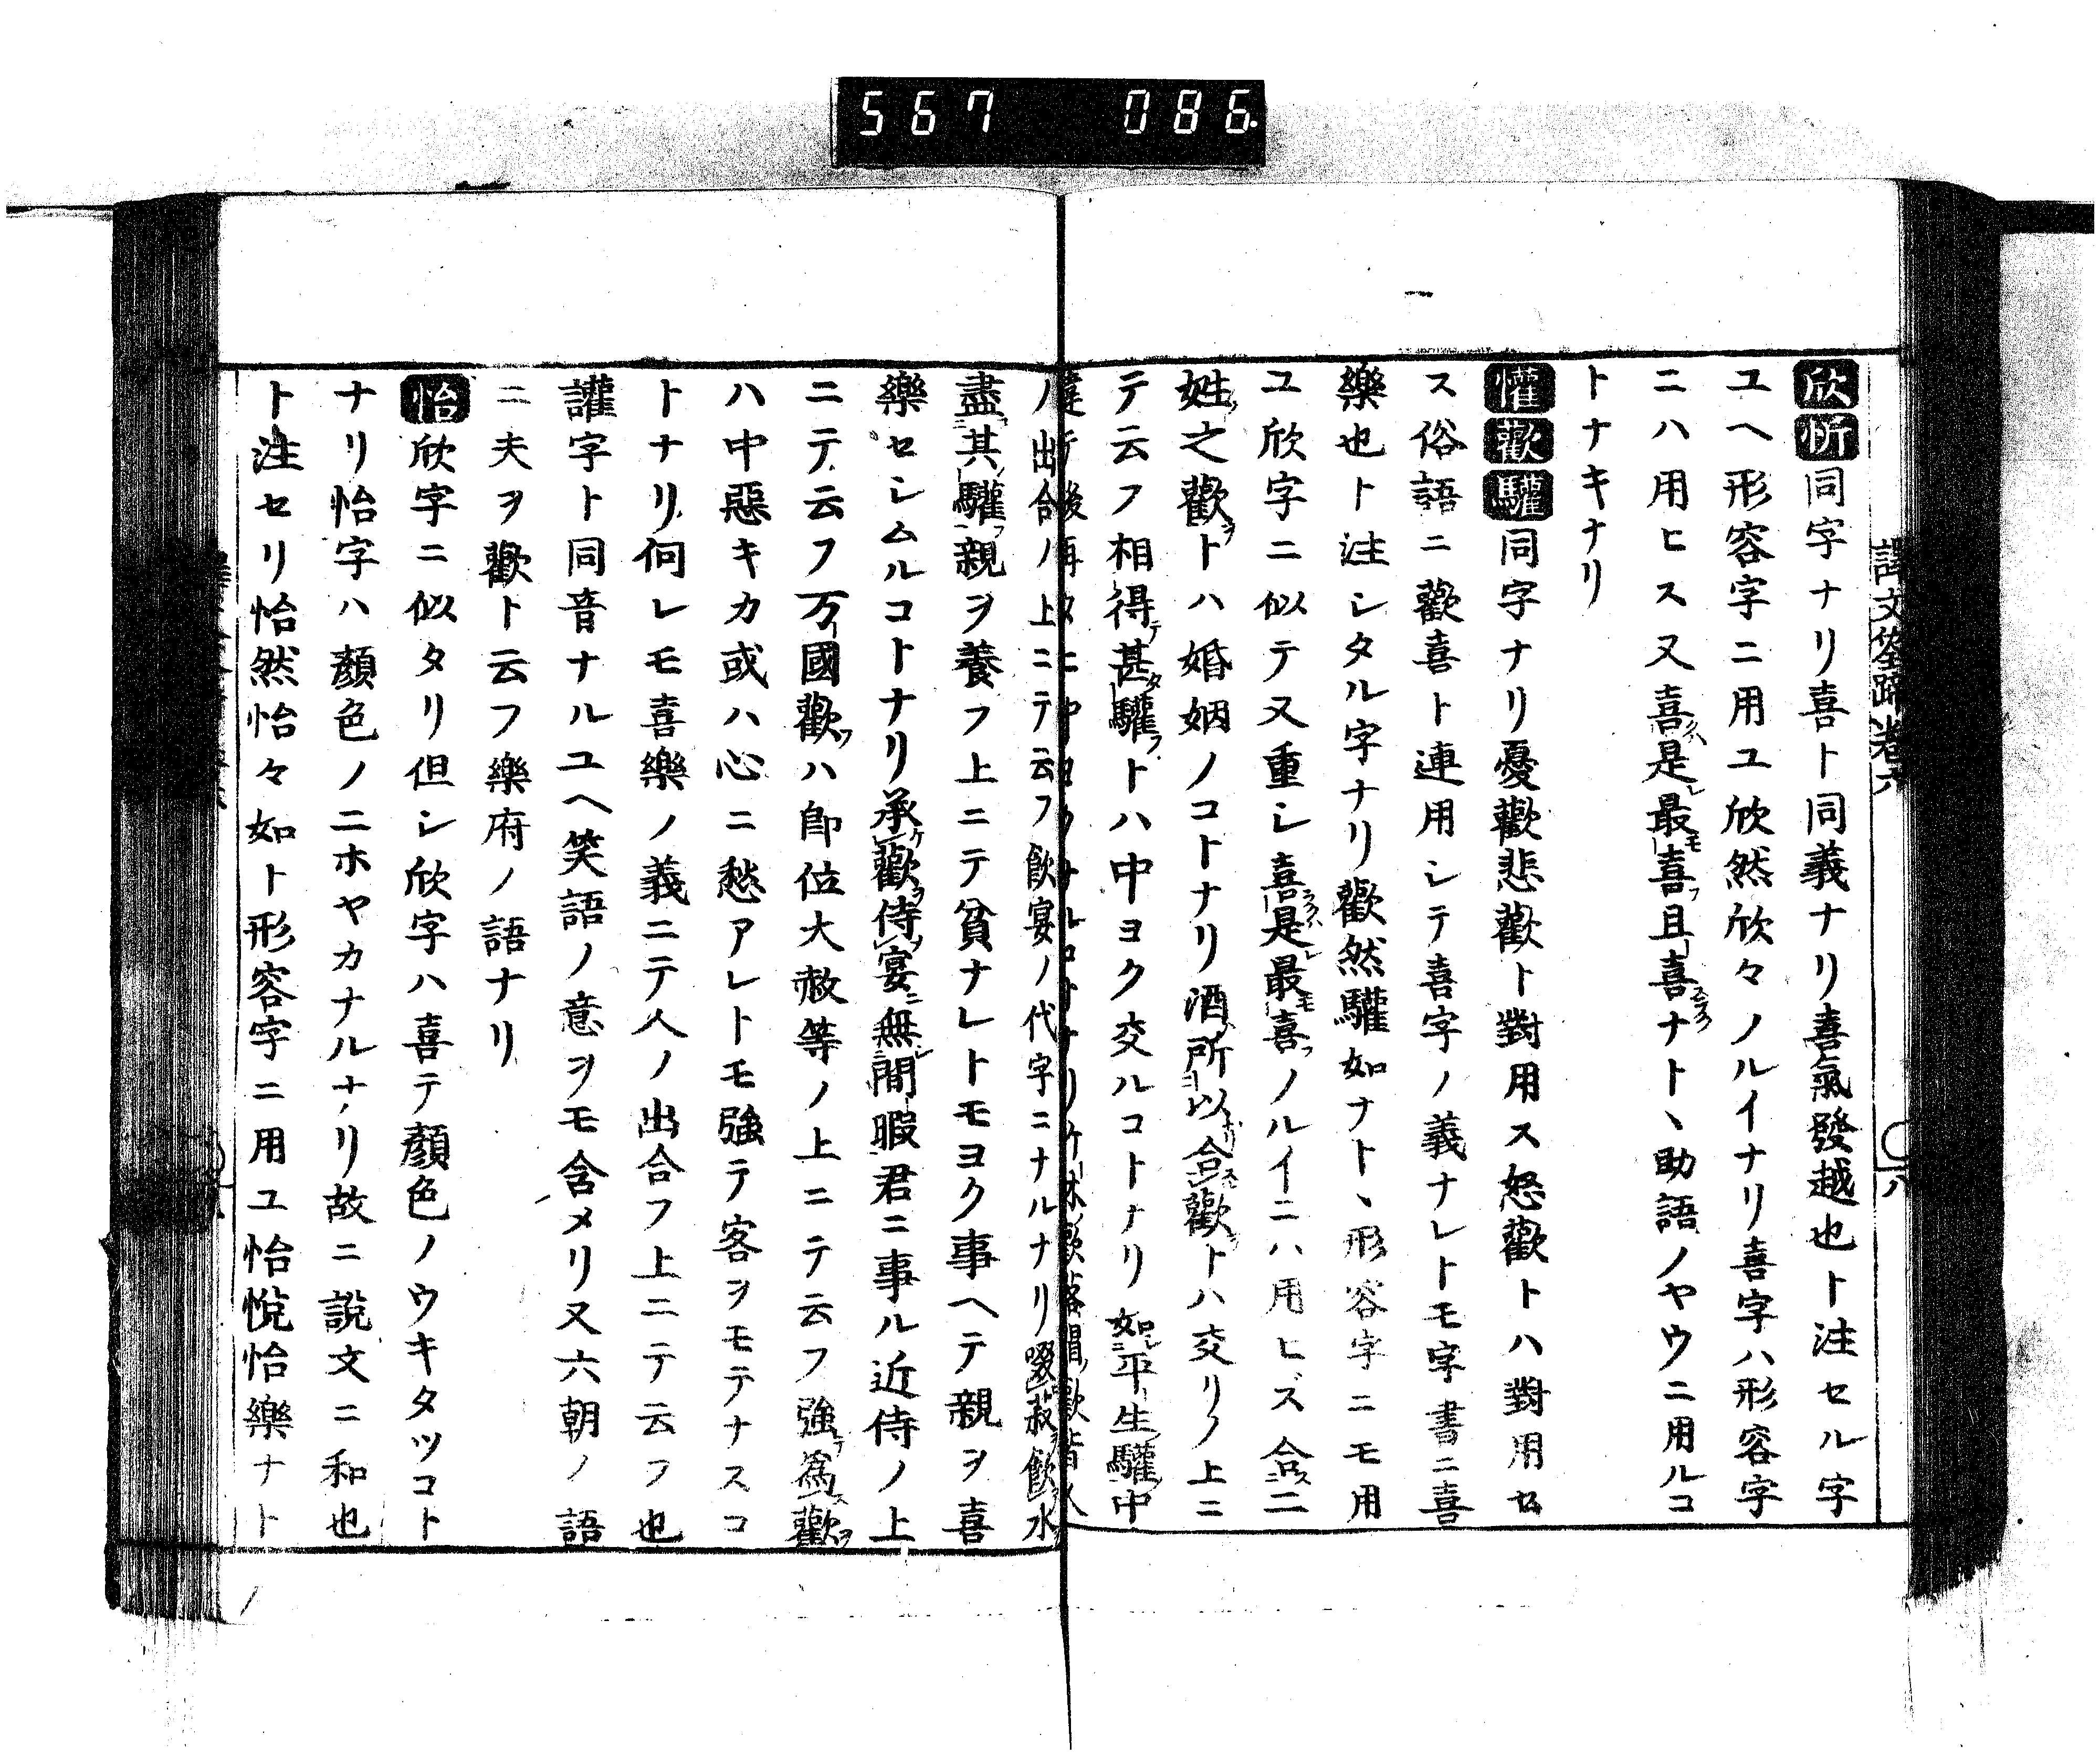 567 086
譯文筌蹄卷六
欣忻同字ナリ喜ト同義ナリ喜氣發越也ト注セル字
ユヘ形容字ニ用ユ欣然欣々ノルイナリ喜字ハ形容字
ニハ用ヒス又喜是最喜且喜ナト丶助語ノヤウニ用ルコ
トナキナリ
懽歡驩同字ナリ憂歡悲歡ト對用ス怒歡トハ對用セ
ス俗語ニ歡喜ト連用シテ喜字ノ義ナレトモ字書ニ喜
樂也ト注シタル字ナリ歡然驩如ナト丶形容字ニモ用
ユ欣字ニ似テ又重シ喜是最喜ノルイニハ用ヒズ合二
姓之歡トハ婚姻ノコトナリ酒所以合歡トハ交リノ上ニ
テ云フ相得甚驩トハ中ヨク交ルコトナリ如平生驩中
ノ出合ノ上ニテ云フ飲宴ノ代字ニナルナリ啜菽飲水
盡其驩親ヲ養フ上ニテ貧ナレトモヨク事ヘテ親ヲ喜
樂セシムルコトナリ承歡侍宴無間暇君ニ事ル近侍ノ上
ニテ云フ万國歡ハ即位大赦等ノ上ニテ云フ強爲歡
ハ中惡キカ或ハ心ニ愁アレトモ強テ客ヲモテナスコ
トナリ何レモ喜樂ノ義ニテ人ノ出合フ上ニテ云フ也
讙字ト同音ナルユヘ笑語ノ意ヲモ含メリ又六朝ノ語
ニ夫ヲ歡ト云フ樂府ノ語ナリ
怡欣字ニ似タリ但シ欣字ハ喜テ顏色ノウキタツコト
ナリ怡字ハ顏色ノニホヤカナルナリ故ニ説文ニ和也
ト注セリ怡然怡々如ト形容字ニ用ユ怡悅怡樂ナト